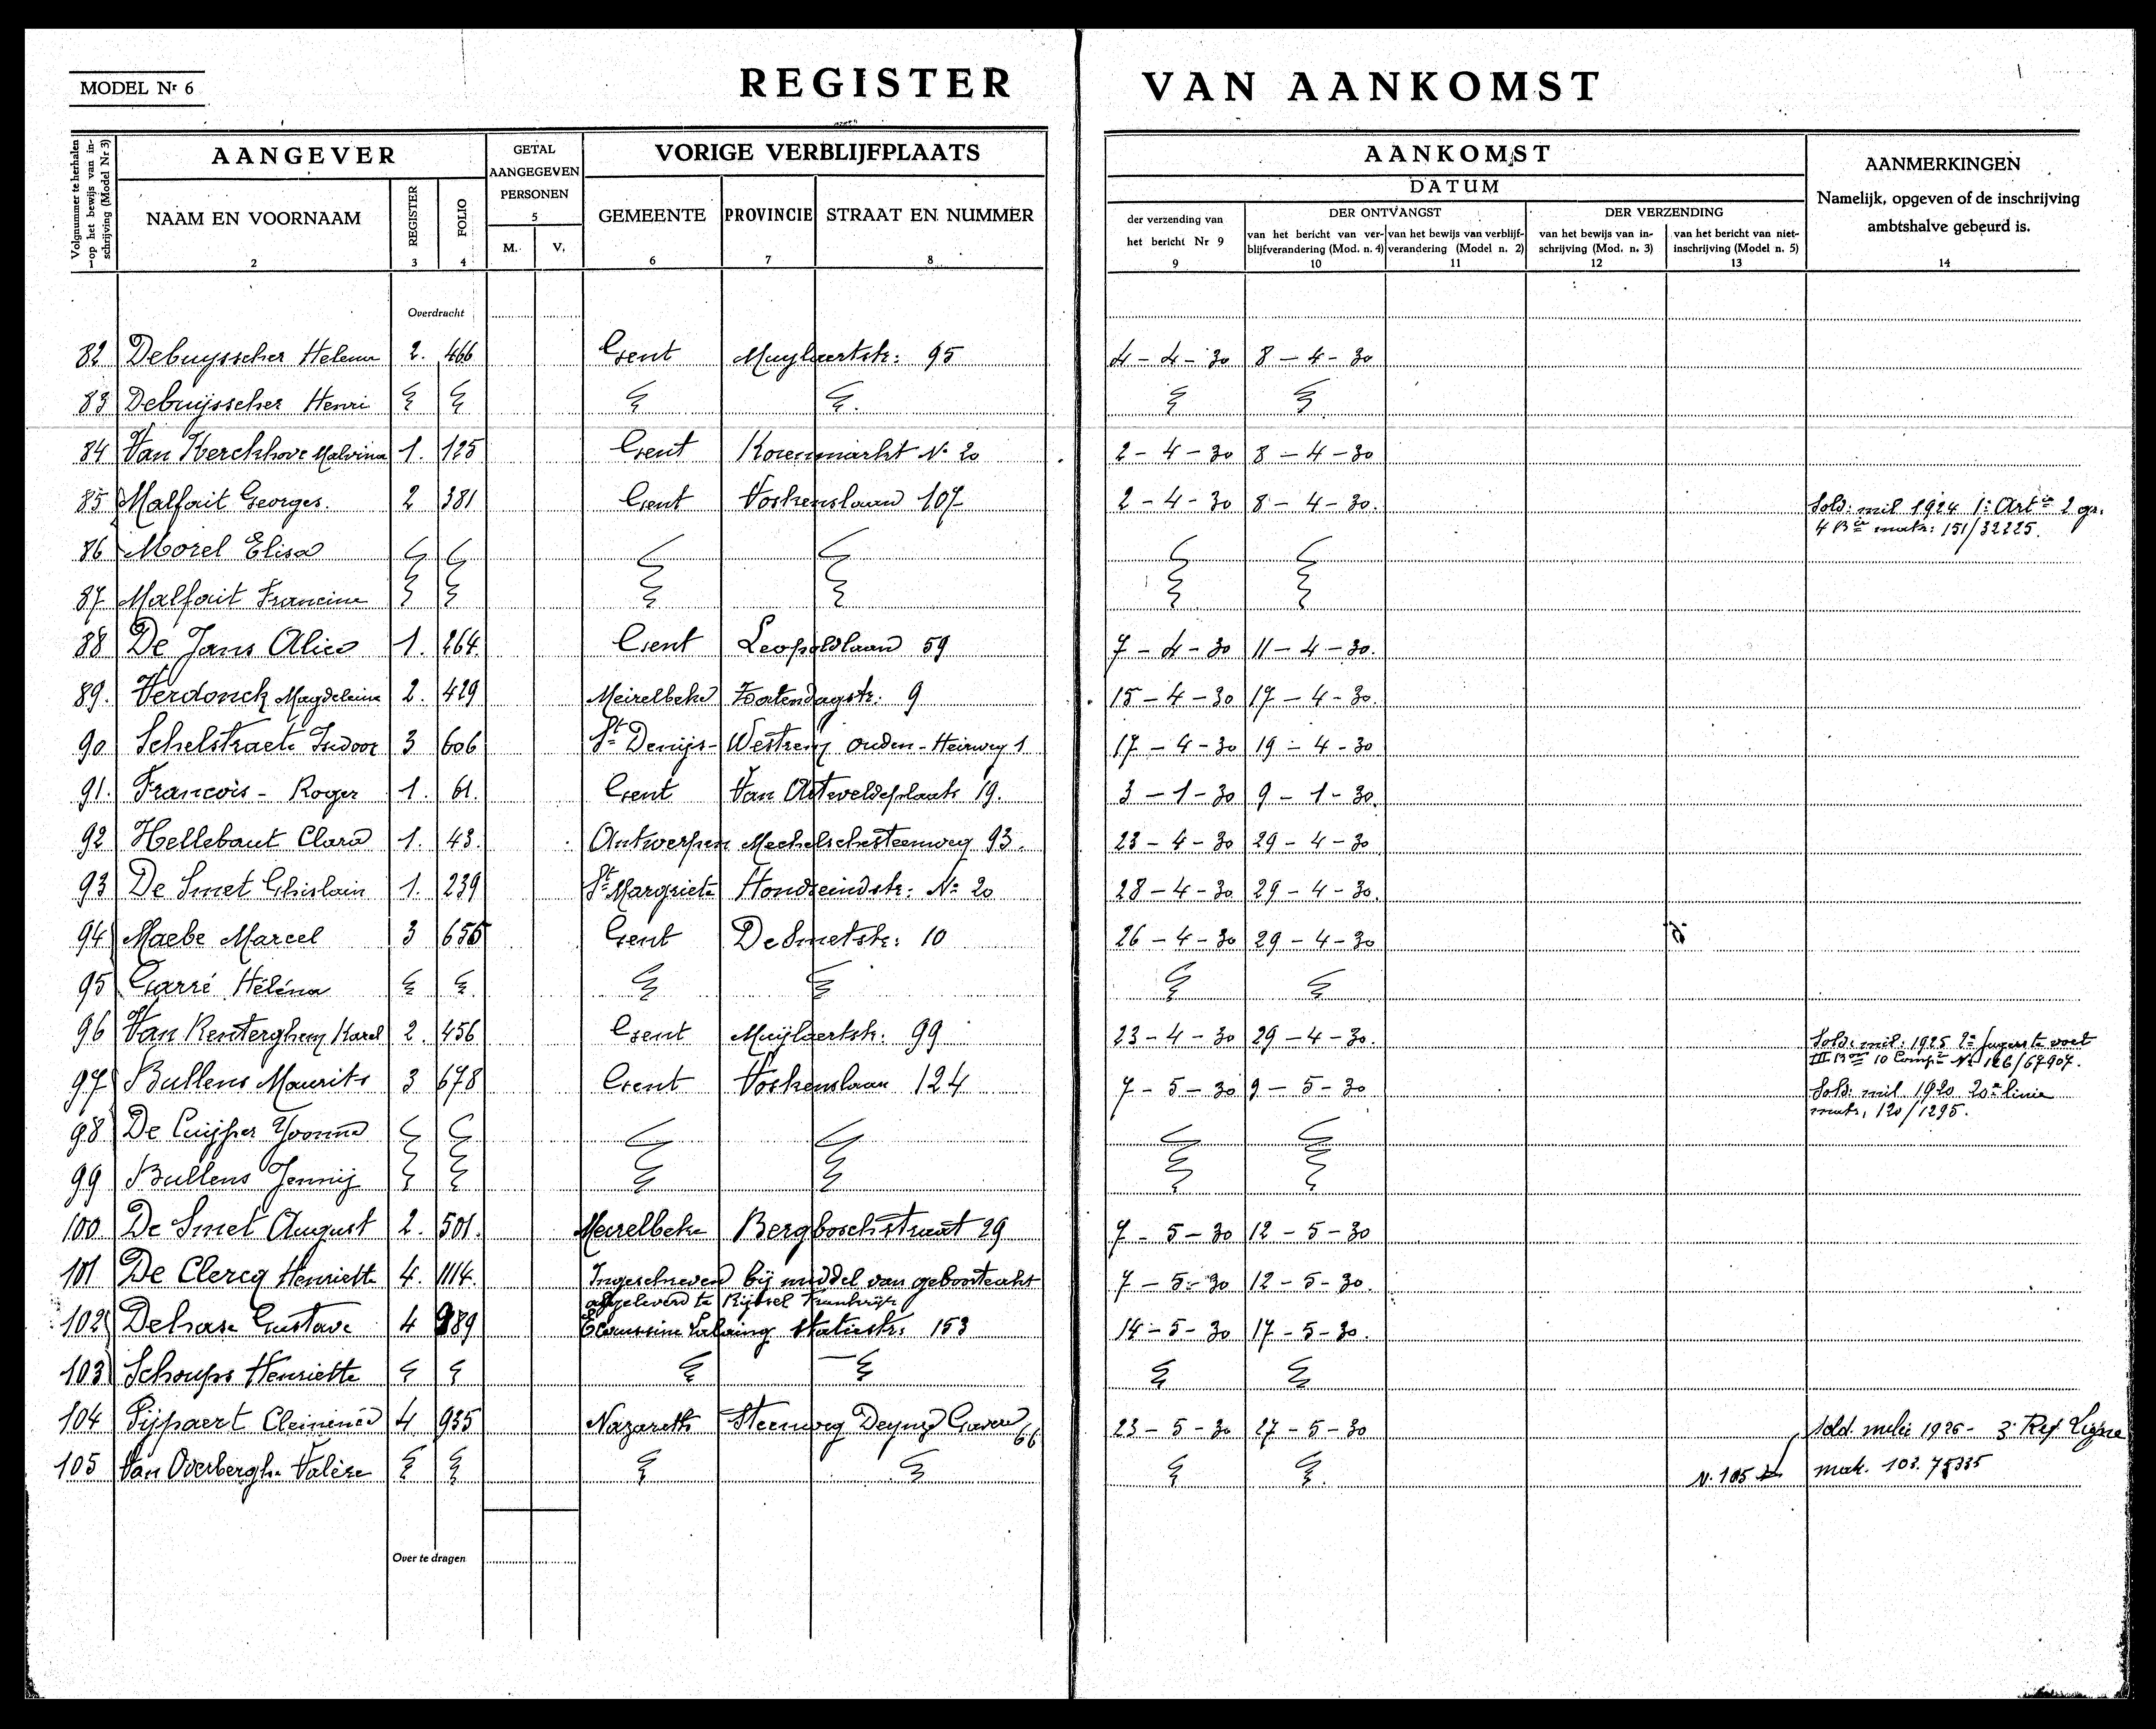 MODEL Nr 6
REGISTER VAN AANKOMST
Volgnummer te herhalen op het bewijs van inschrijving (Model Nr 3)
1
AANGEVER
NAAM EN VOORNAAM
2
REGISTER
3
FOLIO
4
GETAL AANGEGEVEN PERSONEN
5
M. V.
VORIGE VERBLIJFPLAATS
GEMEENTE
6
PROVINCIE
7
STRAAT EN NUMMER
8
AANKOMST
DATUM
der verzending van het bericht Nr 9
9
DER ONTVANGST
van het bericht van verblijfverandering (Mod. n. 4)
10
van het bewijs van verblijfverandering (Model n. 2)
11
DER VERZENDING
van het bewijs van inschrijving (Mod. n. 3)
12
van het bericht van niet-inschrijving (Model n. 5)
13
AANMERKINGEN
Namelijk, opgeven of de inschrijving ambtshalve gebeurd is.
14
Overdracht
82 Debuysscher Helena 2. 466 Gent Muylaertstr: 95 4-4-30 8-4-30
83 Debuijsscher Henri
84 Van Kerckhove Malvina 1. 125 Gent Korenmarkt No 20 2-4-30 8-4-30
85 Malfait Georges. 2 381 Gent Voskenslaan 107 2-4-30 8-4-30. Sold: mil 1924 1e Artie 2 gr.
4 Bie matr: 151/32225.
86 Morel Elisa
87 Malfait Francine
88 De Jans Alice 1. 264. Gent Leopoldlaan 59 7-4-30 11-4-30.
89. Verdonck Magdeleine 2. 429 Meirelbeke 9 15-4-30 17-4-30.
90 Schelstraete Isidoor 3 606 St Denijs-Westrem Ouden-Heirweg 1 17-4-30 19-4-30
91. Francois - Roger 1. 61. Gent Van Arteveldeplaats 19. 3-1-30 9-1-30.
92 Hellebaut Clara 1. 43. Antwerpen Mechelschesteenweg 93. 23-4-30 29-4-30
93 De Smet Ghislain 1. 239 St Margriete Hondseindstr: No 20 28-4-30 29-4-30.
94 Maebe Marcel 3 655 Gent De Smetstr: 10 26-4-30 29-4-30
95 Garré Héléna
96 Van Renterghem Karel 2. 456 Gent Muijlaertstr: 99 23-4-30 29-4-30. Sold: mil: 1925 2e Jagers te voet
III Bon 10 Compie No 126/67907.
97 Bullens Maurits 3 678 Gent Voskenslaan 124 7-5-30 9-5-30 Sold: mil 1920 20e linie
matr. 120/1295.
98 De Cuijper Yvonne
99 Bullens Jennij
100 De Smet August 2. 501. Meirelbeke Bergboschstraat 29 7-5-30 12-5-30
101 De Clercq Henriette 4. 1114. Ingeschreven bij middel van geboorteakt 7-5-30 12-5-30.
afgeleverd te Rijssel Frankrijk
102 Dehase Gustave 4 989 Ecaussine Lalaing Statiestr: 153 14-5-30 17-5-30.
103 Schoups Henriette
104 Pijpaert 4 935 Nazareth Steenweg Deynze Gavere 66 23-5-30 27-5-30 Sold. milie 1926 - 3e Reg Ligne
105 Van Overberghe Valère N. 105 matr. 103.
Over te dragen